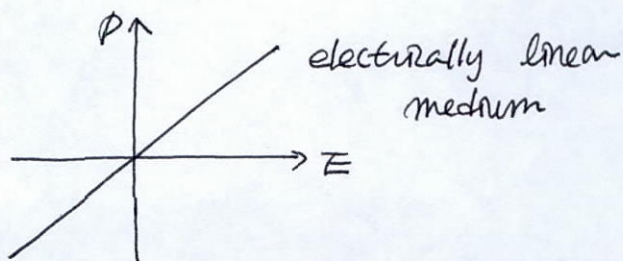 P
electrically linear
medium
E